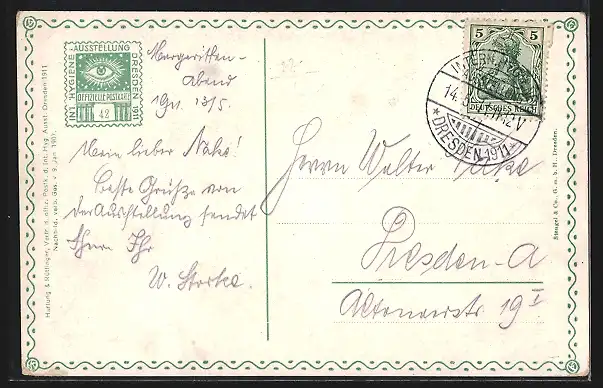 INT. HYGIENE
-AUSSTELLUNG
DRESDEN 1911
OFFIZIELLE POSTKARTE
42
Margeritten-
abend
13/5.
Mein lieber Nake!
Beste Grüße von
der Ausstellung sendet
Ihnen Ihr
W. Storke.
5 5
DEUTSCHES REICH
INTERN. HYG.
14.
12V
* DRESDEN 1911 *
Herrn Walter Nake
Dresden-A
19 I
Hartung & Röttinger, Vertr. d. offiz. Postk. d. Int. Hyg. Ausst. Dresden 1911
Nachbild. verb. Ges. v. 9. Jan. 1907.
Stengel & Co., G. m. b. H., Dresden.